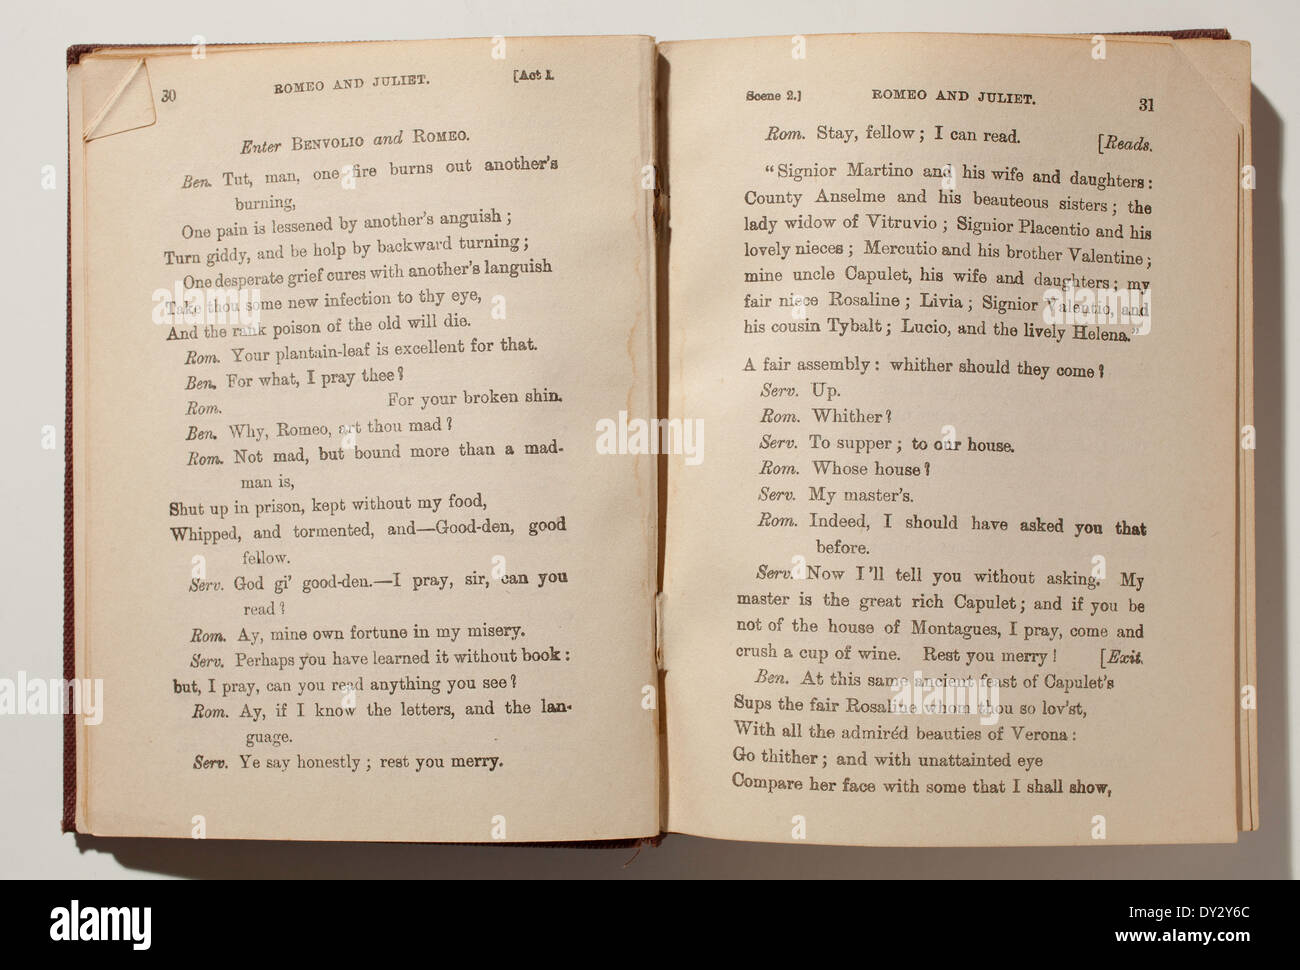 30 ROMEO AND JULIET. [Act 1.
Enter BENVOLIO and ROMEO.
Ben. Tut, man, one fire burns out another's
burning,
One pain is lessened by another's anguish ;
Turn giddy, and be holp by backward turning ;
One desperate grief cures with another's languish
Take thou some new infection to thy eye,
And the rank poison of the old will die.
Rom. Your plantain-leaf is excellent for that.
Ben. For what, I pray thee?
Rom. For your broken shin.
Ben. Why, Romeo, art thou mad?
Rom. Not mad, but bound more than a mad-
man is,
Shut up in prison, kept without my food,
Whipped, and tormented, and—Good-den, good
fellow.
Serv. God gi' good-den.—I pray, sir, can you
read?
Rom. Ay, mine own fortune in my misery.
Serv. Perhaps you have learned it without book :
but, I pray, can you read anything you see?
Rom. Ay, if I know the letters, and the lan-
guage.
Serv. Ye say honestly ; rest you merry.
Scene 2.] ROMEO AND JULIET. 31
Rom. Stay, fellow ; I can read. [Reads.
"Signior Martino and his wife and daughters :
County Anselme and his beauteous sisters ; the
lady widow of Vitruvio ; Signior Placentio and his
lovely nieces ; Mercutio and his brother Valentine ;
mine uncle Capulet, his wife and daughters ; my
fair niece Rosaline ; Livia ; Signior Valentio, and
his cousin Tybalt ; Lucio, and the lively Helena."
A fair assembly : whither should they come?
Serv. Up.
Rom. Whither?
Serv. To supper ; to our house.
Rom. Whose house?
Serv. My master's.
Rom. Indeed, I should have asked you that
before.
Serv. Now I'll tell you without asking. My
master is the great rich Capulet ; and if you be
not of the house of Montagues, I pray, come and
crush a cup of wine. Rest you merry ! [Exit.
Ben. At this same ancient feast of Capulet's
Sups the fair Rosaline whom thou so lov'st,
With all the admiréd beauties of Verona :
Go thither ; and with unattainted eye
Compare her face with some that I shall show,
alamy
Image ID: DY2Y6C
www.alamy.com